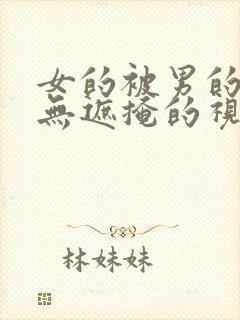 女的被男的
無遮掩的視
林妹妹